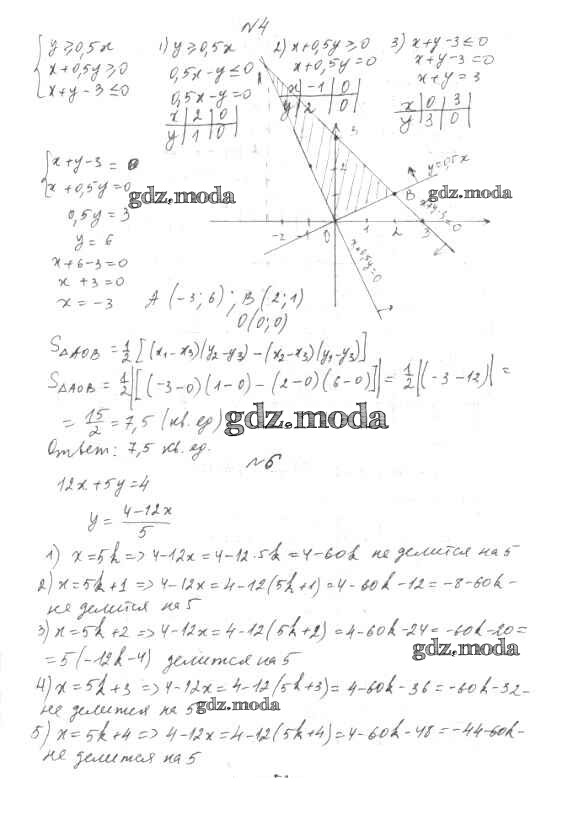 №4
{ y ≥ 0,5x
x + 0,5y ≥ 0
x + y - 3 ≤ 0
1) y ≥ 0,5x
0,5x - y ≤ 0
0,5x - y = 0
x | 2 | 0
y | 1 | 0
2) x + 0,5y ≥ 0
x + 0,5y = 0
x | -1 | 0
y | 2 | 0
3) x + y - 3 ≤ 0
x + y - 3 = 0
x + y = 3
x | 0 | 3
y | 3 | 0
{ x + y - 3 = 0
x + 0,5y = 0
0,5y = 3
y = 6
x + 6 - 3 = 0
x + 3 = 0
x = -3
gdz.moda
gdz.moda
y = 0,5x
B
x+y-3=0
x+0,5y=0
-2 -1 0 1 2 3
A (-3; 6); B (2; 1)
O (0; 0)
S△AOB = 1/2 [(x₁-x₃)(y₂-y₃) - (x₂-x₃)(y₁-y₃)]
S△AOB = 1/2 |[(-3-0)(1-0) - (2-0)(6-0)]| = 1/2 |(-3-12)| =
= 15/2 = 7,5 (кв. ед)
gdz.moda
Ответ: 7,5 кв. ед.
№5
12x + 5y = 4
y = (4-12x)/5
1) x = 5k => 4-12x = 4-12·5k = 4-60k не делится на 5
2) x = 5k+1 => 4-12x = 4-12(5k+1) = 4-60k-12 = -8-60k -
не делится на 5
3) x = 5k+2 => 4-12x = 4-12(5k+2) = 4-60k-24 = -60k-20 =
= 5(-12k-4) делится на 5
gdz.moda
4) x = 5k+3 => 4-12x = 4-12(5k+3) = 4-60k-36 = -60k-32 -
не делится на 5
gdz.moda
5) x = 5k+4 => 4-12x = 4-12(5k+4) = 4-60k-48 = -44-60k -
не делится на 5